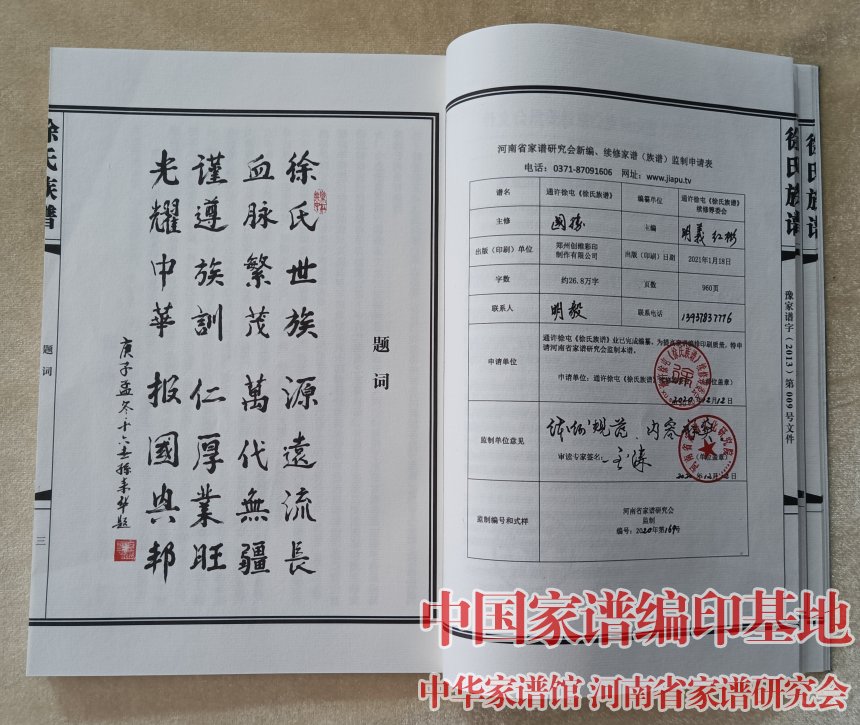 徐氏族谱
题词
三
题词
徐氏世族源遠流長
血脉繁茂萬代無疆
谨遵族訓仁厚業旺
光耀中華报國兴邦
庚子孟冬十六世孫
河南省家谱研究会新编、续修家谱(族谱)监制申请表
电话:0371-87091606 网址:www.jiapu.tv
谱名 通许徐屯《徐氏族谱》 编纂单位 通许徐屯《徐氏族谱》续修理委会
主修 国 主编 明義 红彬
出版(印刷)单位 郑州创维彩印制作有限公司 出版(印刷)日期 2021年1月18日
字数 约26.8万字 页数 960页
联系人 明毅 联系电话 13937837776
申请单位 通许徐屯《徐氏族谱》业已完成编纂,为提高家谱编修印刷质量,特申
请河南省家谱研究会监制本谱。
申请单位:通许徐屯《徐氏族谱》续修 (单位盖章)
2020.12.12
监制单位意见 体例规范、内容
审读专家签名: (单位盖章)
2020.12.
监制编号和式样 河南省家谱研究会
监制
编号:2020年第169号
豫家谱字(2013)第009号文件
徐氏族谱
徐氏族谱
中国家谱编印基地
中华家谱馆 河南省家谱研究会